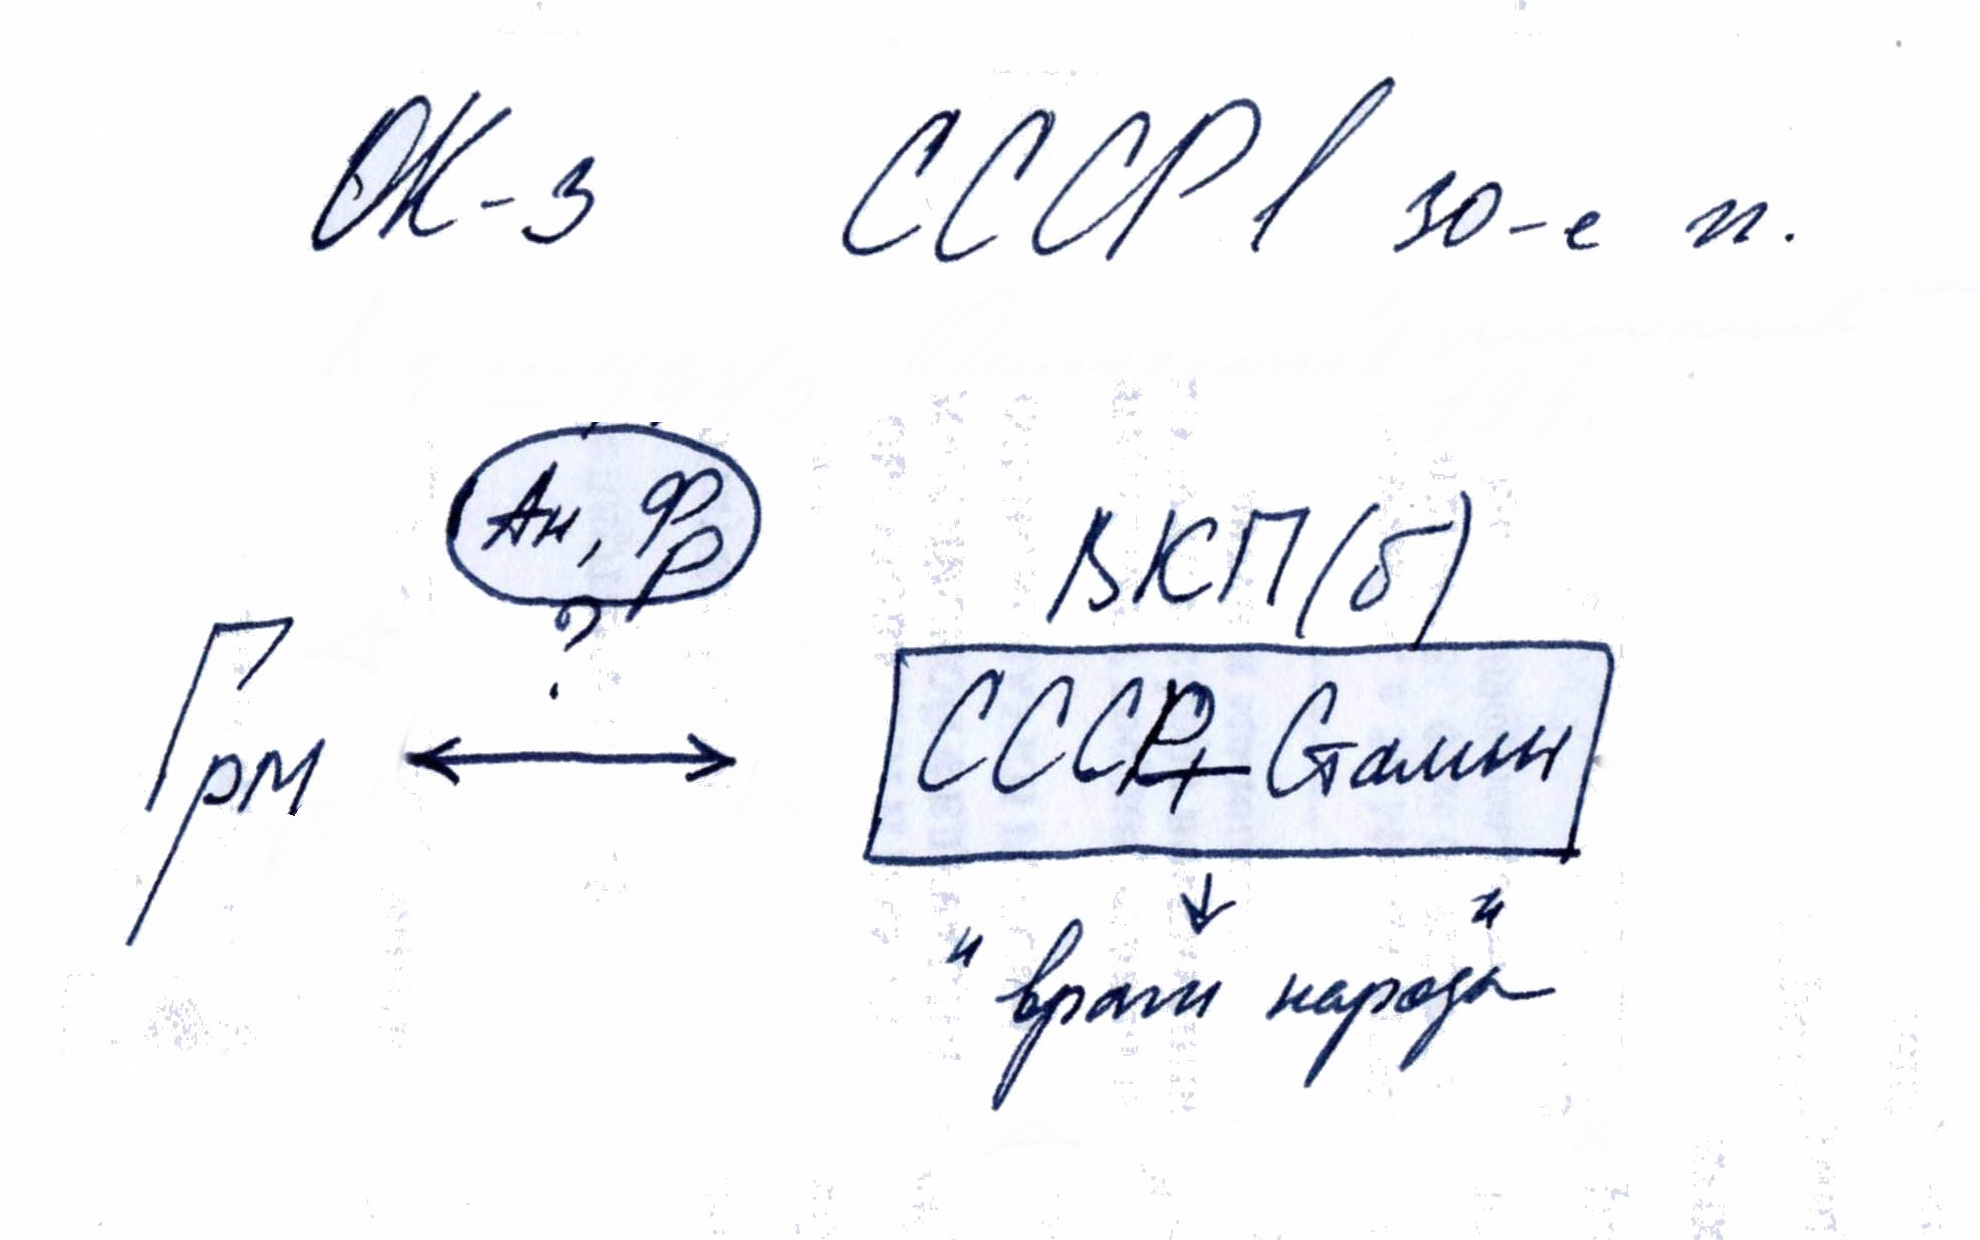 ОК-3 СССР в 30-е гг.
Ан, Фр
?
ВКП(б)
Грм
СССР + Сталин
"враги народа"